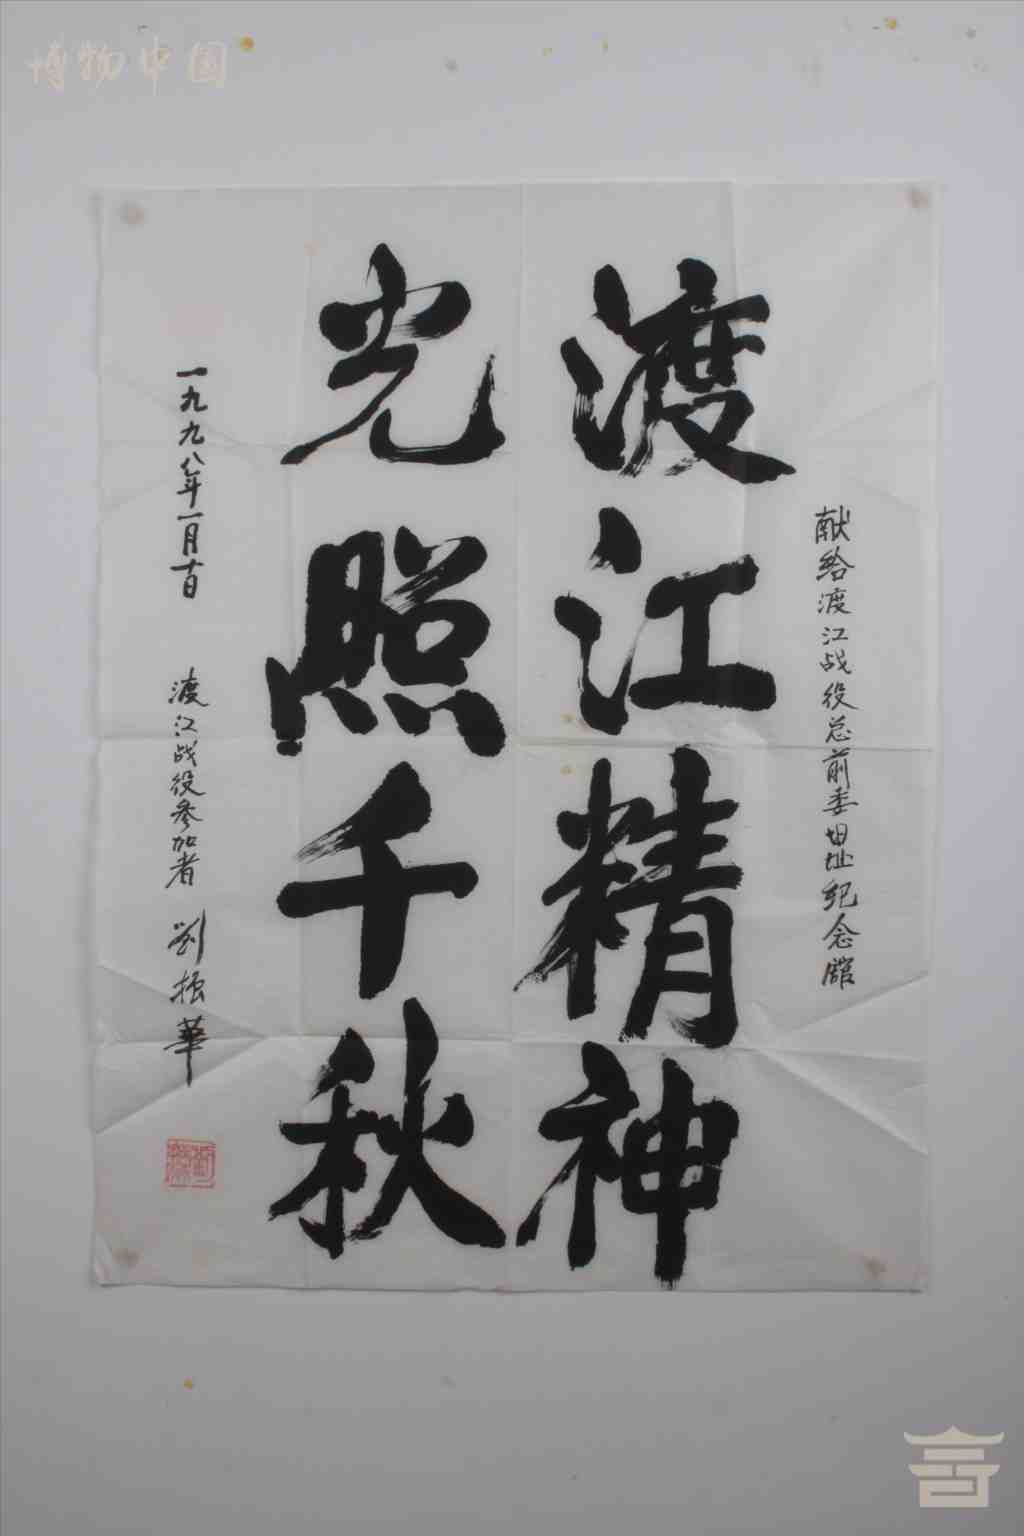 博物中国
献给渡江战役总前委旧址纪念馆
渡江精神
光照千秋
一九九八年一月十日 渡江战役参加者 劉振華